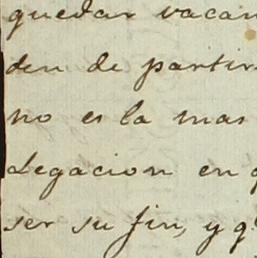 quedar vacan
den de partir
no es la mas
Legacion en q
ser su fin, y q